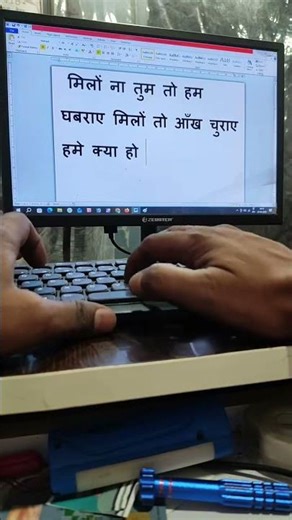 मिलों ना तुम तो हम
घबराए मिलों तो आँख चुराए
हमे क्या हो
ZEBRONICS